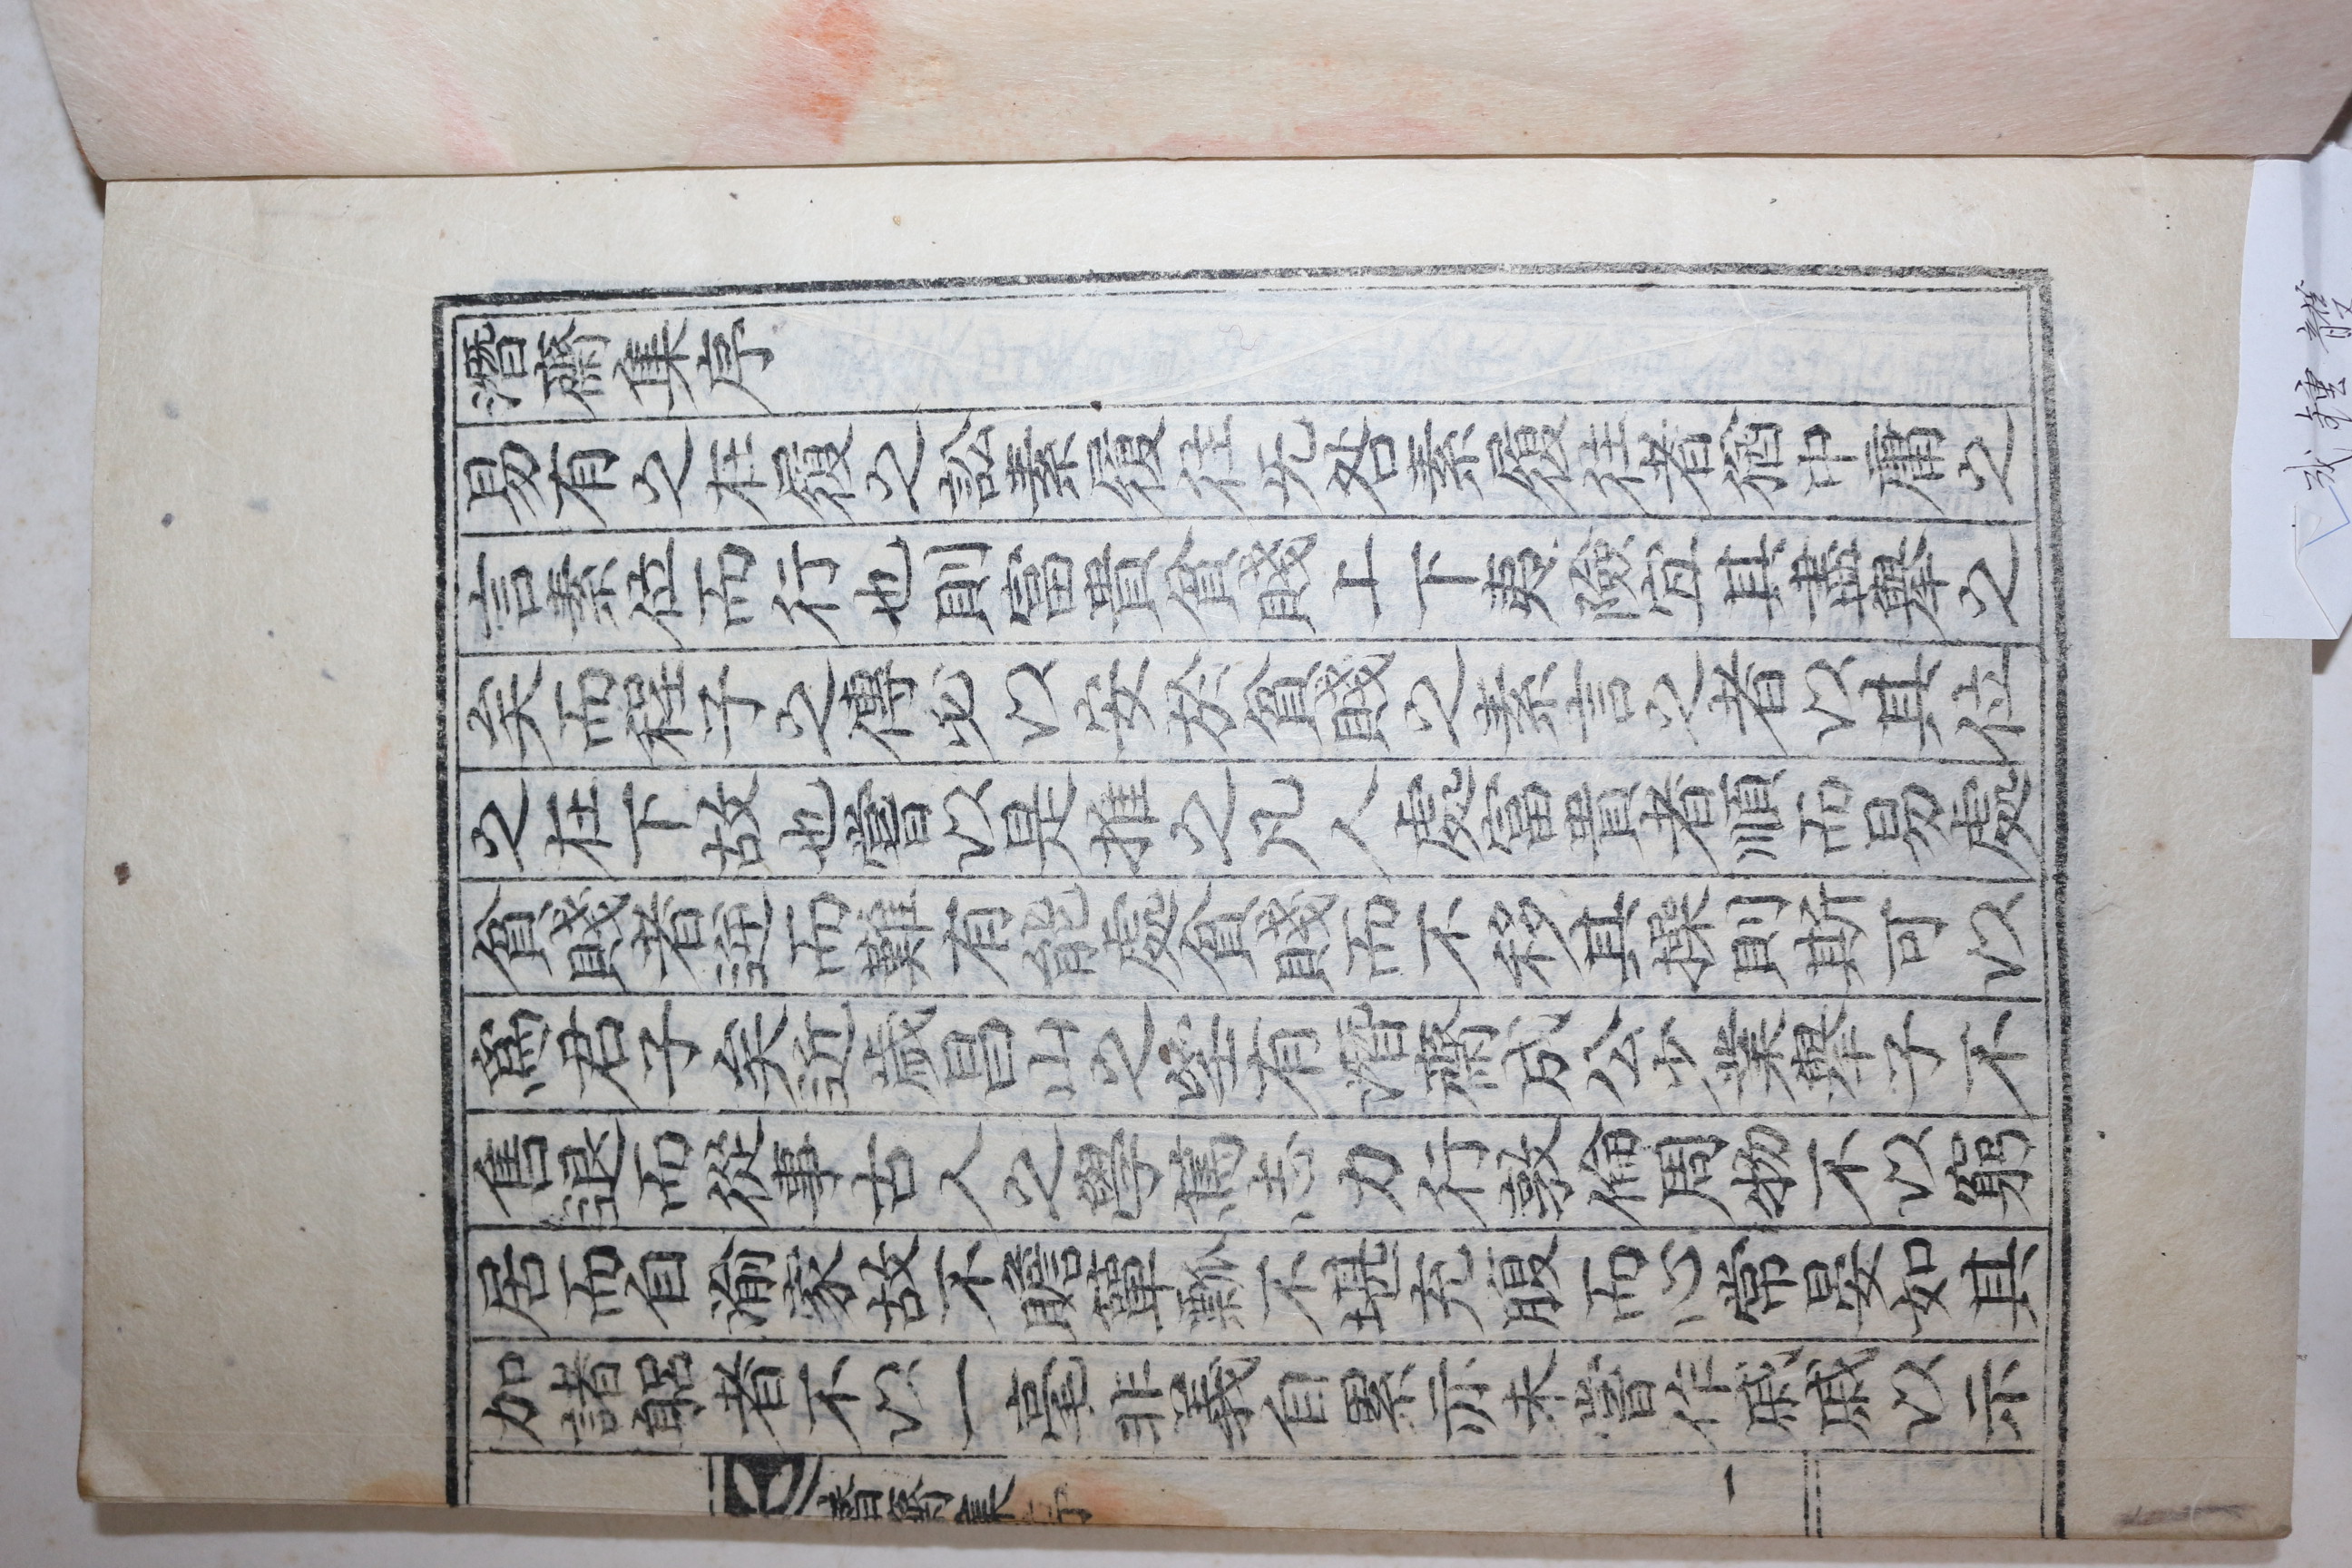 潛齋集序
易有之在履之訟素履往无咎素履往者猶中庸之
言素位而行也則富貴貧賤上下夷險宜其盡擧之
矣而程子之傳必以安於貧賤之素言之者以其位
之在下故也嘗以是推之凡人處富貴者順而易處
貧賤者逆而難有能處貧賤而不移其操則斯可以
爲君子矣近歲昌山之有潛齋成公少業擧子不
售退而從事古人之學篤志力行敦倫周物不以窮
居而自渝家故不贍簞瓢不堪充腹而心常晏如其
加諸躬者不以一毫非義自累亦未嘗作戚戚以示
潛齋集 序
一
成鍾護